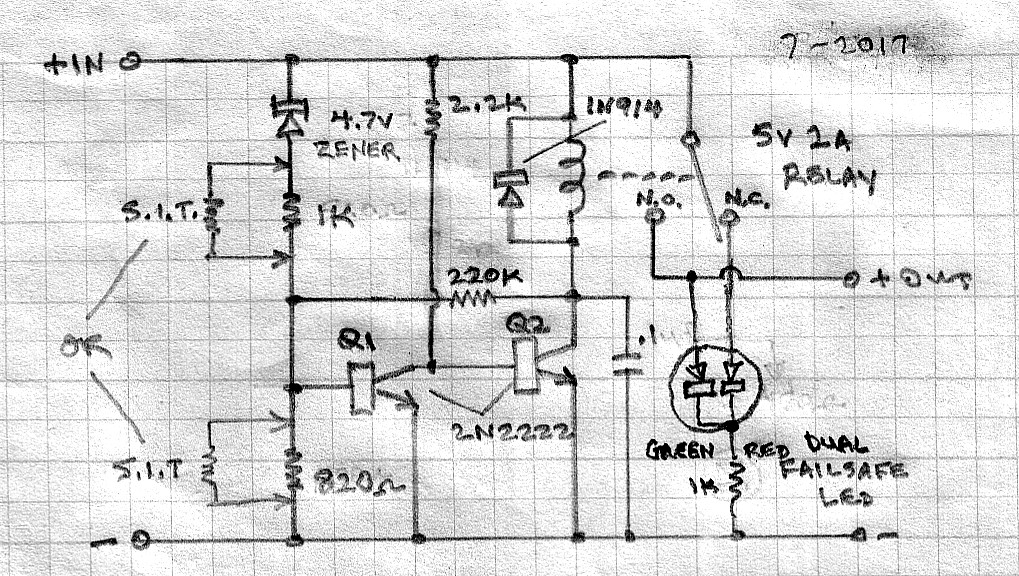 7-2017
+IN
4.7V
ZENER
2.2K
1N914
5V 2A
RELAY
N.O.
N.C.
S.I.T.
1K
220K
+ OUT
Q1
Q2
.1
0K
2N2222
S.I.T
820Ω
GREEN
RED
DUAL
FAILSAFE
LED
1K
-
-